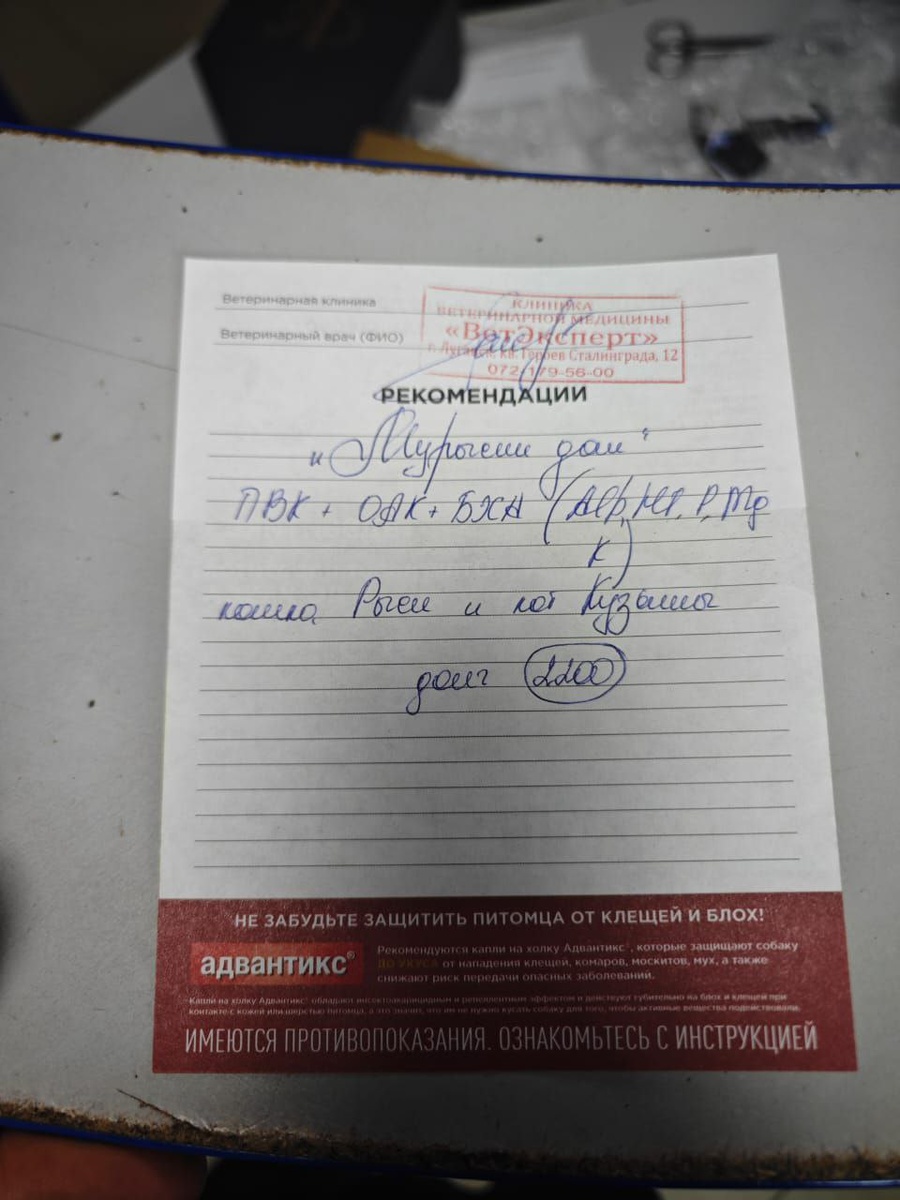 Ветеринарная клиника
Ветеринарный врач (ФИО)
КЛИНИКА
ВЕТЕРИНАРНОЙ МЕДИЦИНЫ
«ВетЭксперт»
г. Луганск, кв. Героев Сталинграда, 12
072-179-56-00
РЕКОМЕНДАЦИИ
"Мурысин дом"
ПВК + ОАК + БХА (Alb, P, Mg
K)
кошка Рыси и кот Кузьмы
долг 2200
НЕ ЗАБУДЬТЕ ЗАЩИТИТЬ ПИТОМЦА ОТ КЛЕЩЕЙ И БЛОХ!
адвантикс®
Рекомендуются капли на холку Адвантикс*, которые защищают собаку
ДО УКУСА от нападения клещей, комаров, москитов, мух, а также
снижают риск передачи опасных заболеваний.
*Капли на холку Адвантикс® обладают инсектоакарицидным и репеллентным эффектом и действуют губительно на блох и клещей при
контакте с кожей или шерстью питомца, а это значит, что им не нужно кусать собаку для того, чтобы активные вещества подействовали.
ИМЕЮТСЯ ПРОТИВОПОКАЗАНИЯ. ОЗНАКОМЬТЕСЬ С ИНСТРУКЦИЕЙ